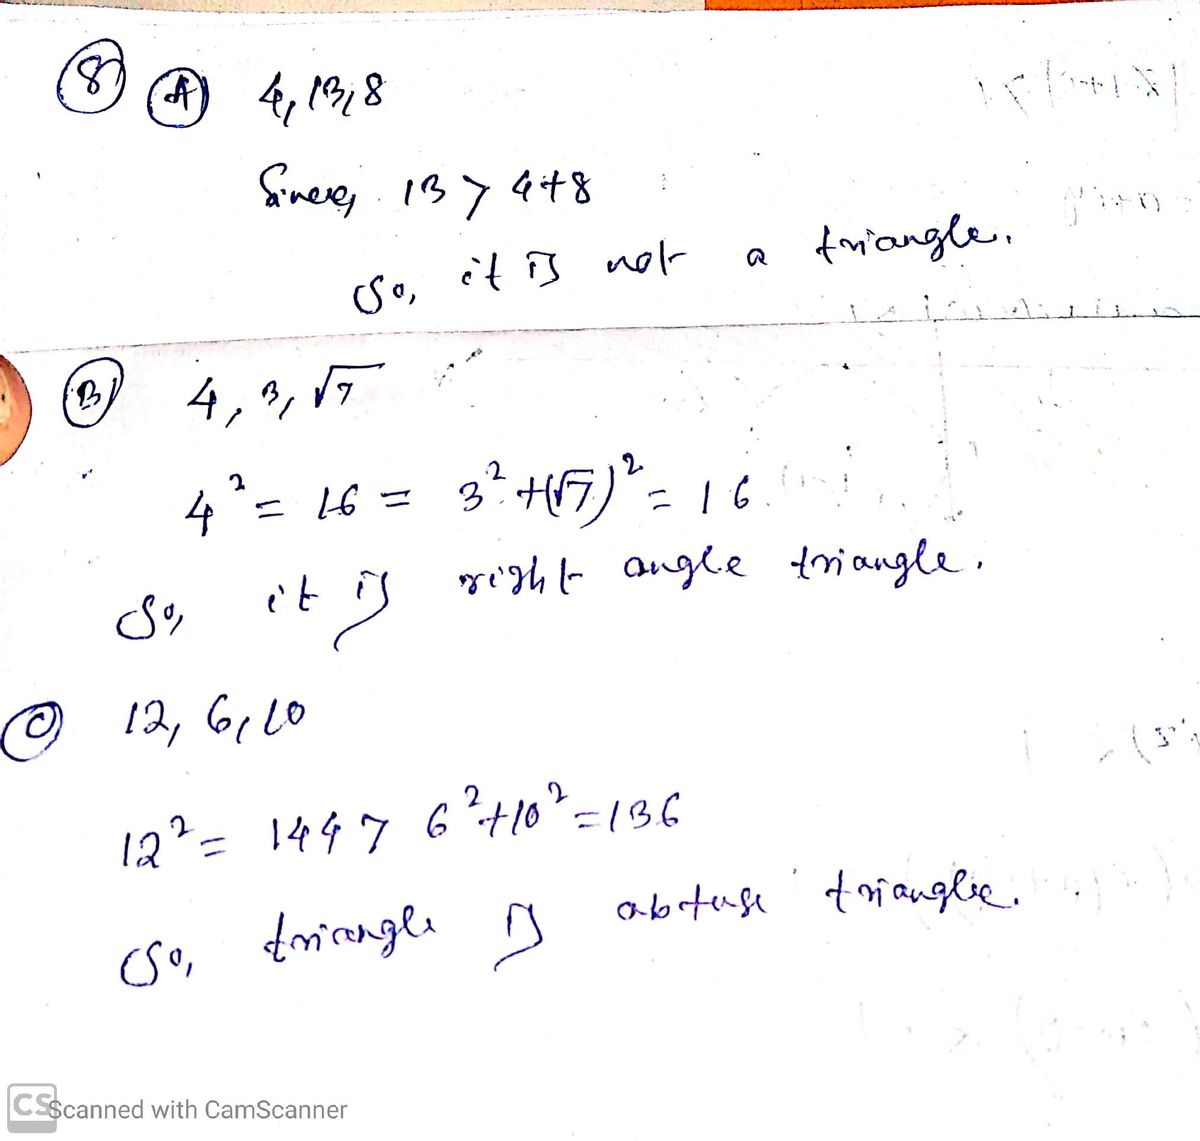 8 A) 4, 13, 8
Since, 13 > 4+8
So, it is not a triangle.
B) 4, 3, √7
4² = 16 = 3² + (√7)² = 16
So, it is right angle triangle.
C 12, 6, 10
12² = 144 > 6² + 10² = 136
So, triangle is obtuse triangle.
CS Scanned with CamScanner